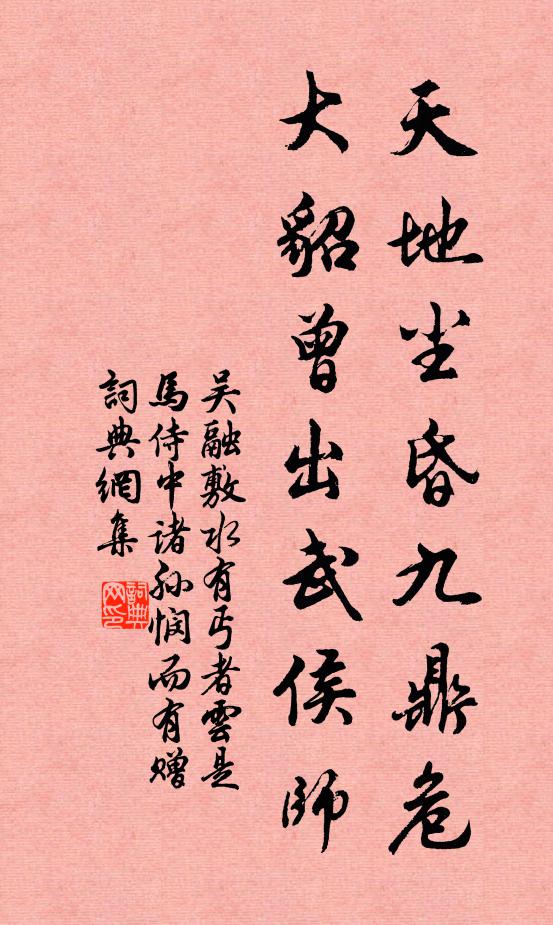 天地尘昏九鼎危
大貂曾出武侯師
吴融敷水有丐者雲是
馬侍中诸孙悯而有赠
詞典網集
詞典网印